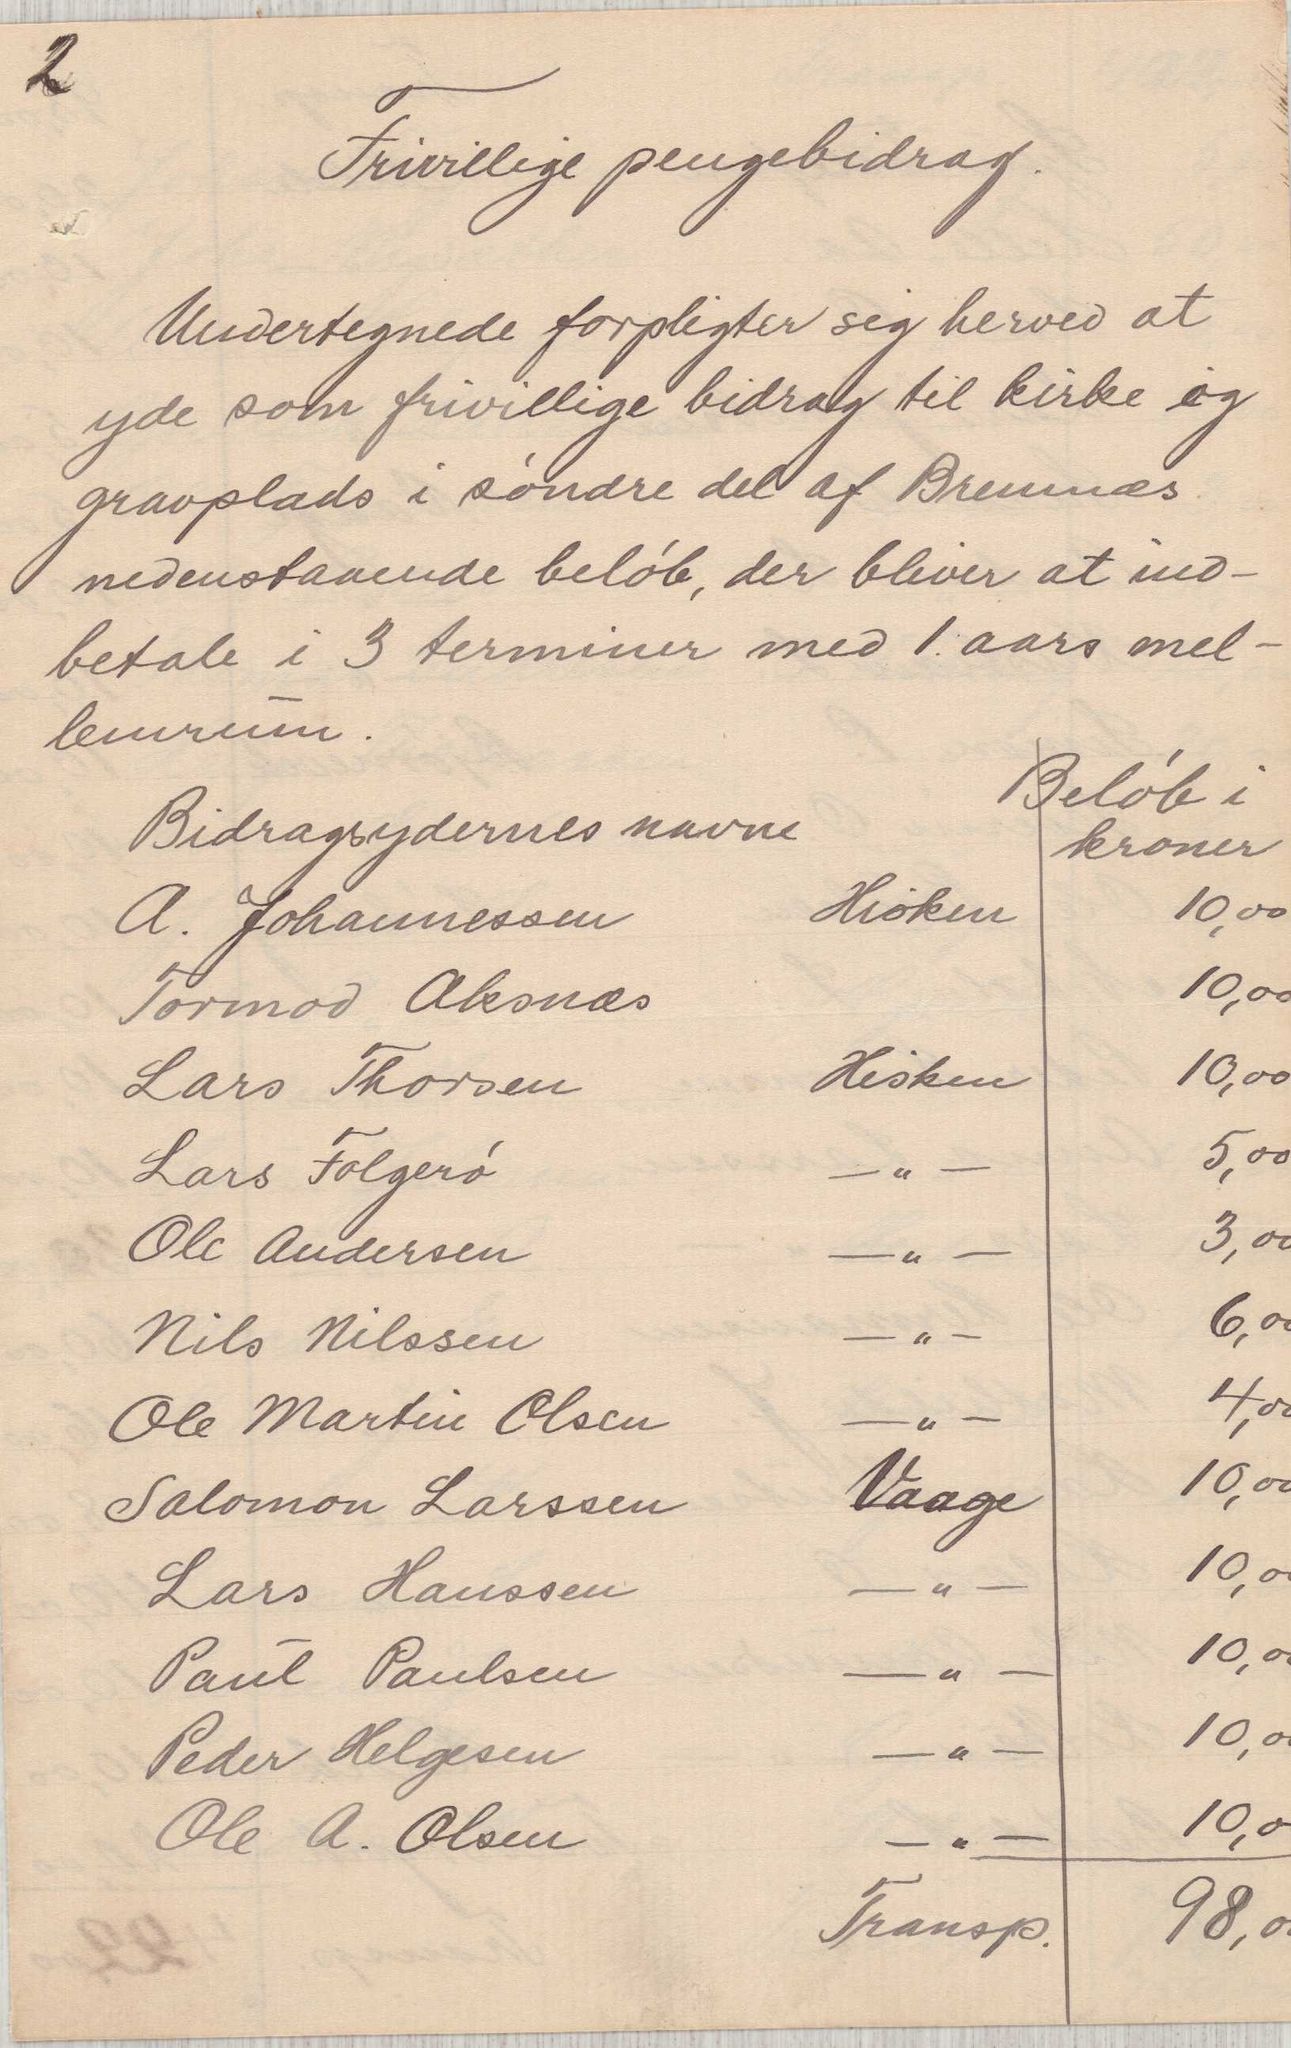 2
Frivillige pengebidrag.
Undertegnede forpligter sig herved at
yde som frivillige bidrag til kirke og
gravplads i søndre del af Bremnæs
nedenstaaende beløb, der bliver at ind-
betale i 3 terminer med 1. aars mel-
lemrum.
Bidragsydernes navne Beløb i
kroner
A. Johannessen Hisken 10,00
Tormod Aksnæs 10,00
Lars Thorsen Hisken 10,00
Lars Folgerø —"— 5,00
Ole Andersen —"— 3,00
Nils Nilssen —"— 6,00
Ole Martin Olsen —"— 4,00
Salomon Larssen Vaage 10,00
Lars Hanssen —"— 10,00
Paul Paulsen —"— 10,00
Peder Helgesen —"— 10,00
Ole A. Olsen —"— 10,0
Transp. 98,0